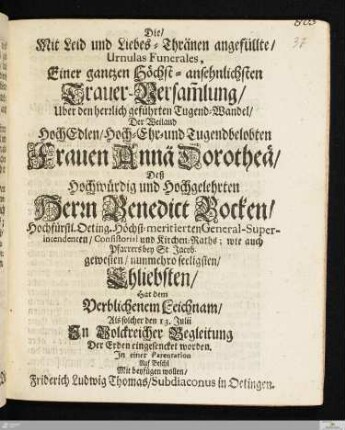 37
Die/
Mit Leid und Liebes-Thränen angefüllte/
Urnulas Funerales,
Einer gantzen Höchst-ansehnlichsten
Trauer-Versam̃lung/
Uber den herrlich geführten Tugend-Wandel/
Der Weiland
HochEdlen/Hoch-Ehr-und Tugendbelobten
Frauen Annä Dorotheä/
Deß
Hochwürdig und Hochgelehrten
Herrn Benedict Bocken/
Hochfürstl. Oeting. Höchst-meritierten General-Super-
intendenten/ Consistorial und Kirchen-Raths; wie auch
Pfarrers bey St Jacob.
gewesten/ nunmehro seeligsten/
Ehliebsten/
Hat dem
Verblichenem Leichnam/
Als solcher den 13. Julii
In Volckreicher Begleitung
Der Erden eingesencket worden.
In einer Parentation
Auf Befehl
Mit beyfügen wollen/
Friderich Ludwig Thomas/Subdiaconus in Oetingen.